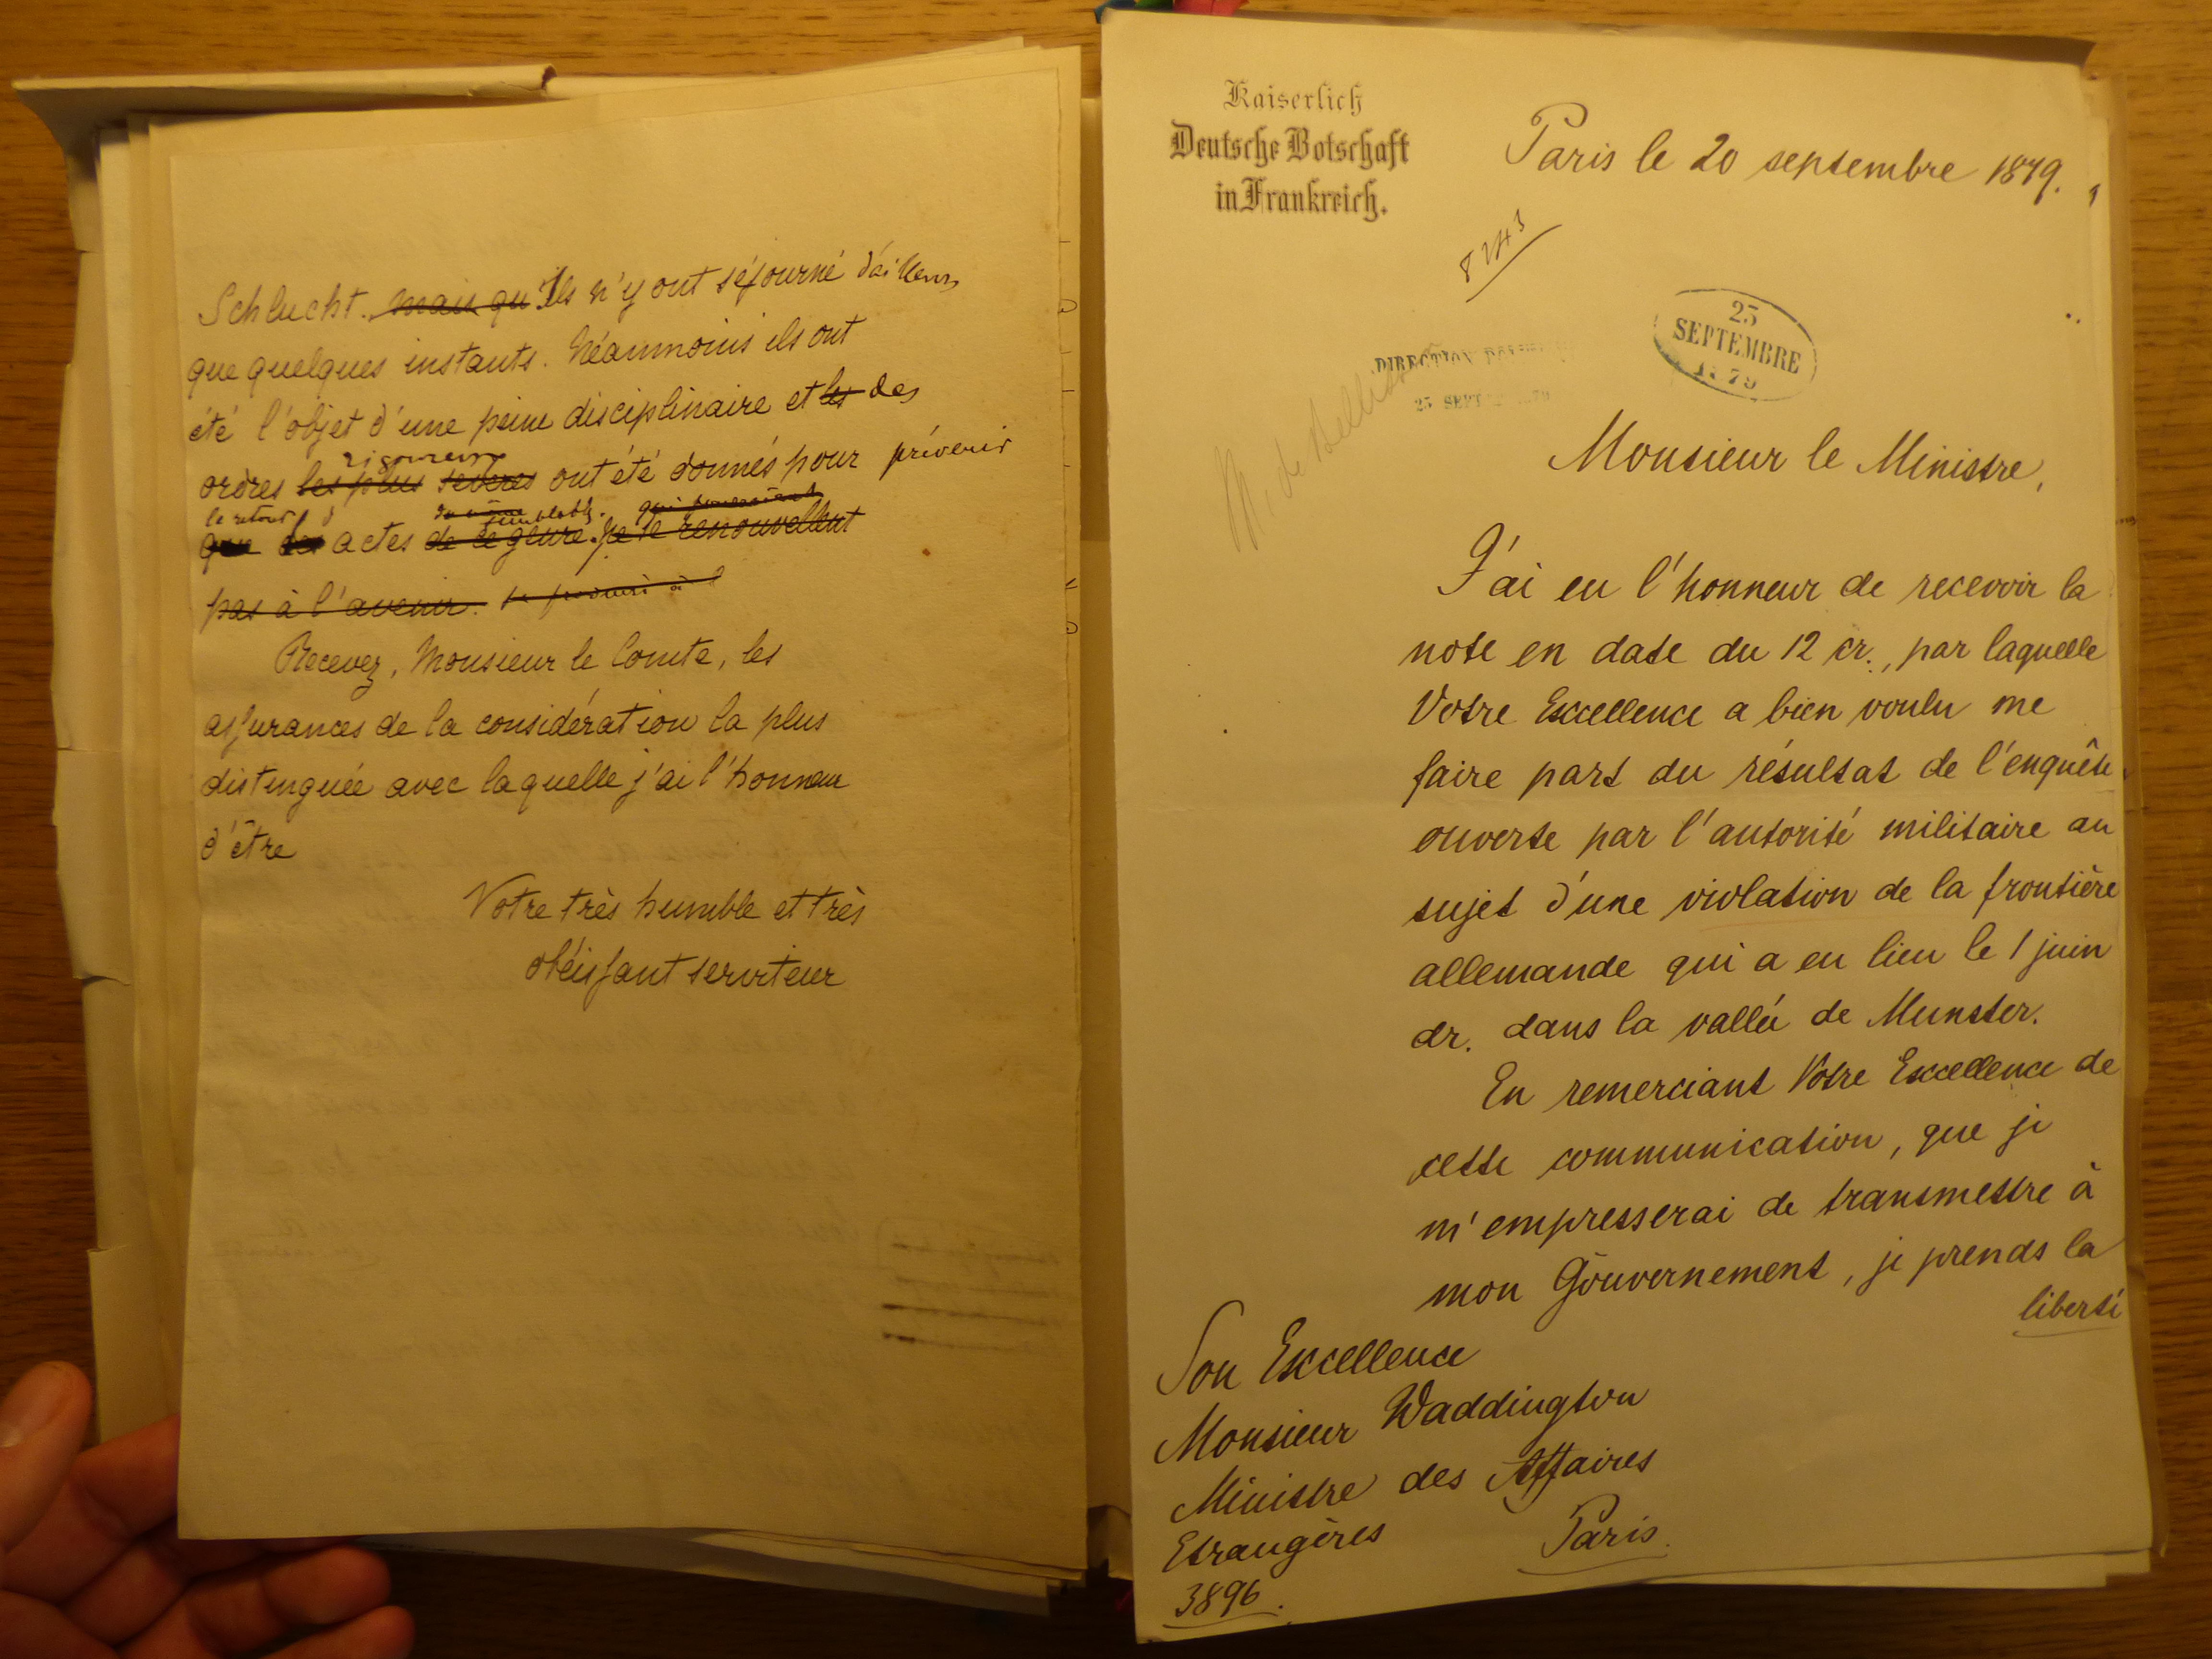 Schlucht. mais qu'Ils n'y ont séjourné d'ailleurs
que quelques instants. Néanmoins ils ont
été l'objet d'une peine disciplinaire et les des
rigoureux
ordres les plus sévères ont été donnés pour prévenir
le retour d'
semblables.
que des actes de ce genre. ne se renouvellent
pas à l'avenir.
Recevez, Monsieur le Comte, les
assurances de la considération la plus
distinguée avec laquelle j'ai l'honneur
d'être
Votre très humble et très
obéissant serviteur
Kaiserlich
Deutsche Botschaft
in Frankreich.
Paris le 20 septembre 1879.
8243
25
SEPTEMBRE
1879
DIRECTION
25 SEPT
M. de
Monsieur le Ministre,
J'ai eu l'honneur de recevoir la
note en date du 12 cr., par laquelle
Votre Excellence a bien voulu me
faire part du résultat de l'enquête
ouverte par l'autorité militaire au
sujet d'une violation de la frontière
allemande qui a eu lieu le 1 juin
dr. dans la vallée de Munster.
En remerciant Votre Excellence de
cette communication, que je
m'empresserai de transmettre à
mon Gouvernement, je prends la
liberté
Son Excellence
Monsieur Waddington
Ministre des Affaires
Etrangères
Paris.
3896.